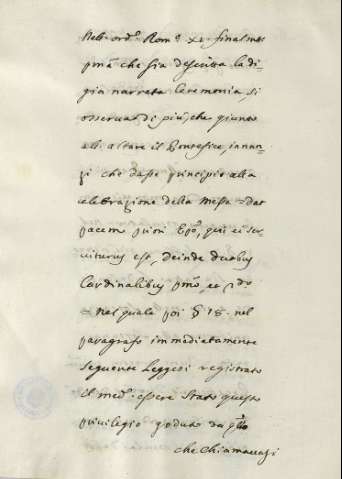 Nell' ord.e Rom.o XI. finalmte
pma che sia descritta la di-
già narrata Ceremonia, si
osserva di più, che giunto
all' altare il Pontefice, innan-
zi che dasse principio alla
celebrazione della Messa = dat
pacem priori Epo, qui ei ser-
viturus est, deinde duobus
Cardinalibus pmo, et 2do
= nel quale poi § 18. nel
paragrafo immediatamente
seguente leggesi registrato
il med.o essere stato questo
privilegio goduto da qllo
che chiamavasi